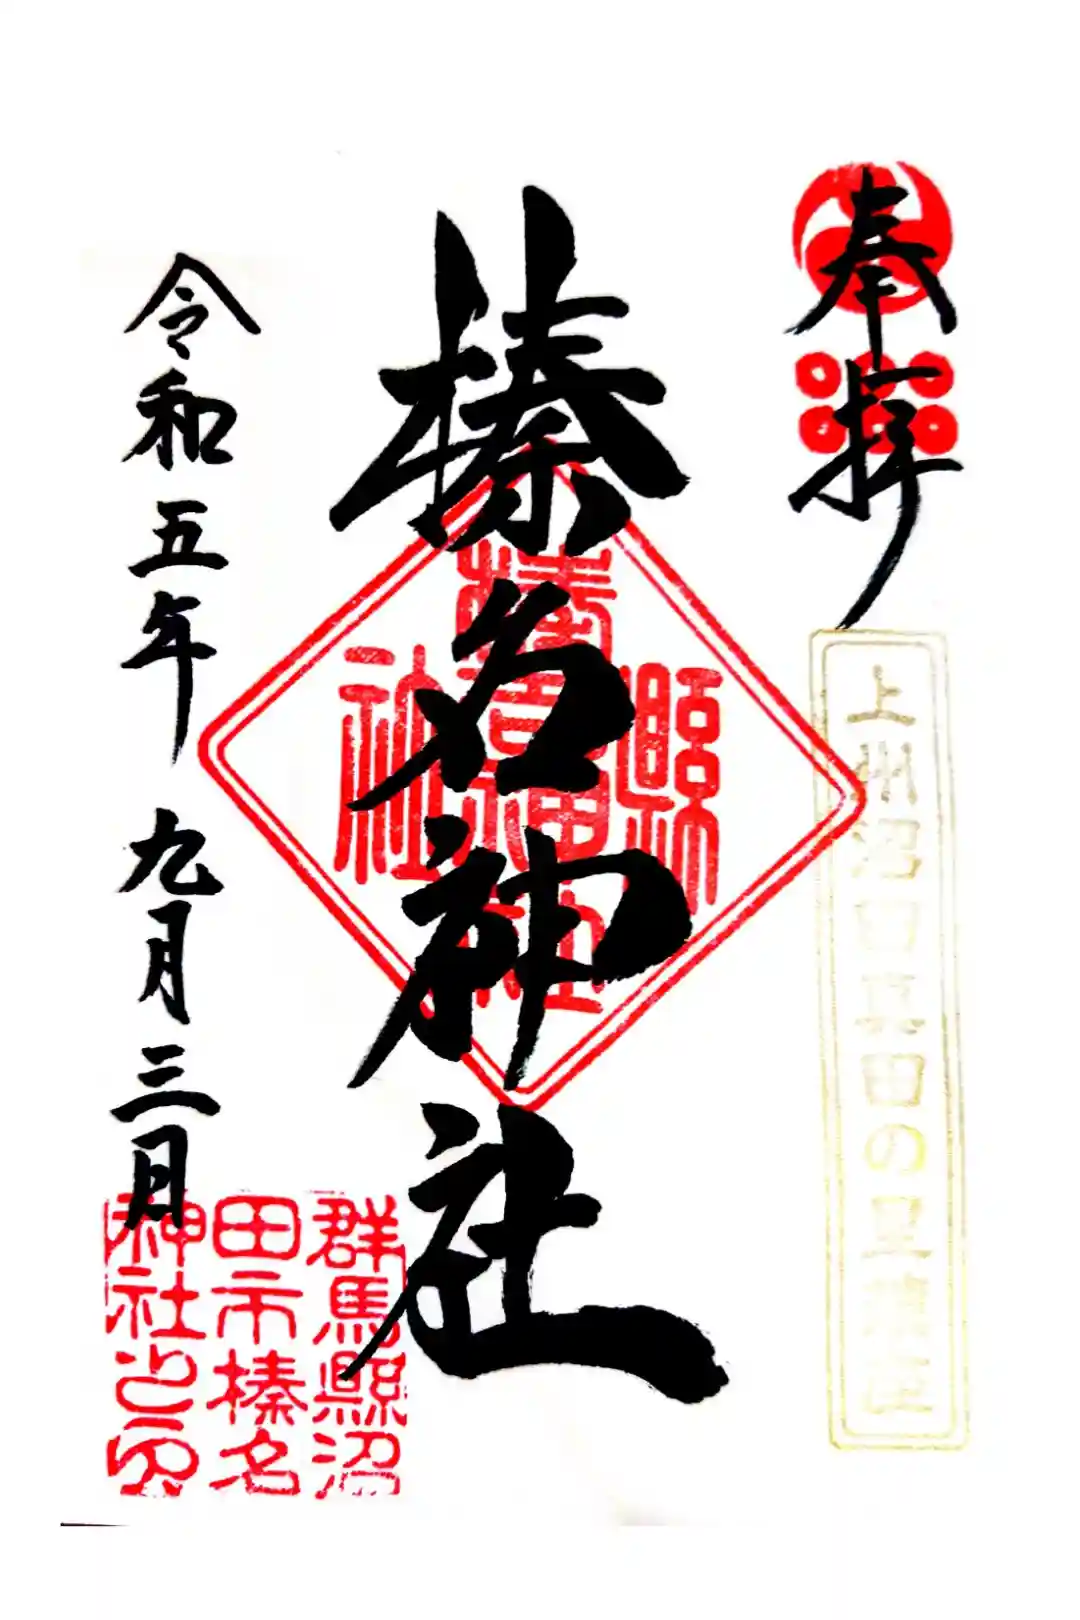 奉拝
上州沼田真田の里鎮座
榛名神社
群馬縣沼
田市榛名
神社之印
令和五年九月三日